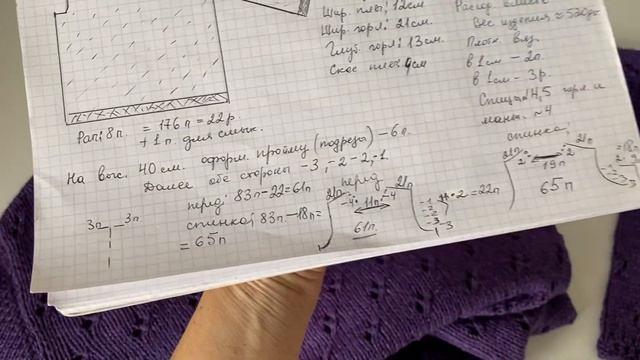 Шир. плеч: 12см
Шир. горл: 21см.
Глуб. горл: 13см.
Скос плеч 4см
Вес изделия ≈ 530гр
Плотн. вяз.
в 1см – 2п.
в 1см – 3р.
Спицы 4,5 горл. и
манж. ~4
спинка,
Рап: 8п. = 176п = 22р.
+ 1п. для смык.
На выс. 40см. оформ. пройму (подрезы) – 6п.
Далее обе стороны -3, -2 -2, -1.
перед: 83п – 22 = 61п
спинка; 83п – 18п =
= 65п
3п 3п
перед
21п 21п
-4 11п -4
61п
-1
-2
-2
-3
3
·2 = 22п
21п 21п
2 2
19п
65п